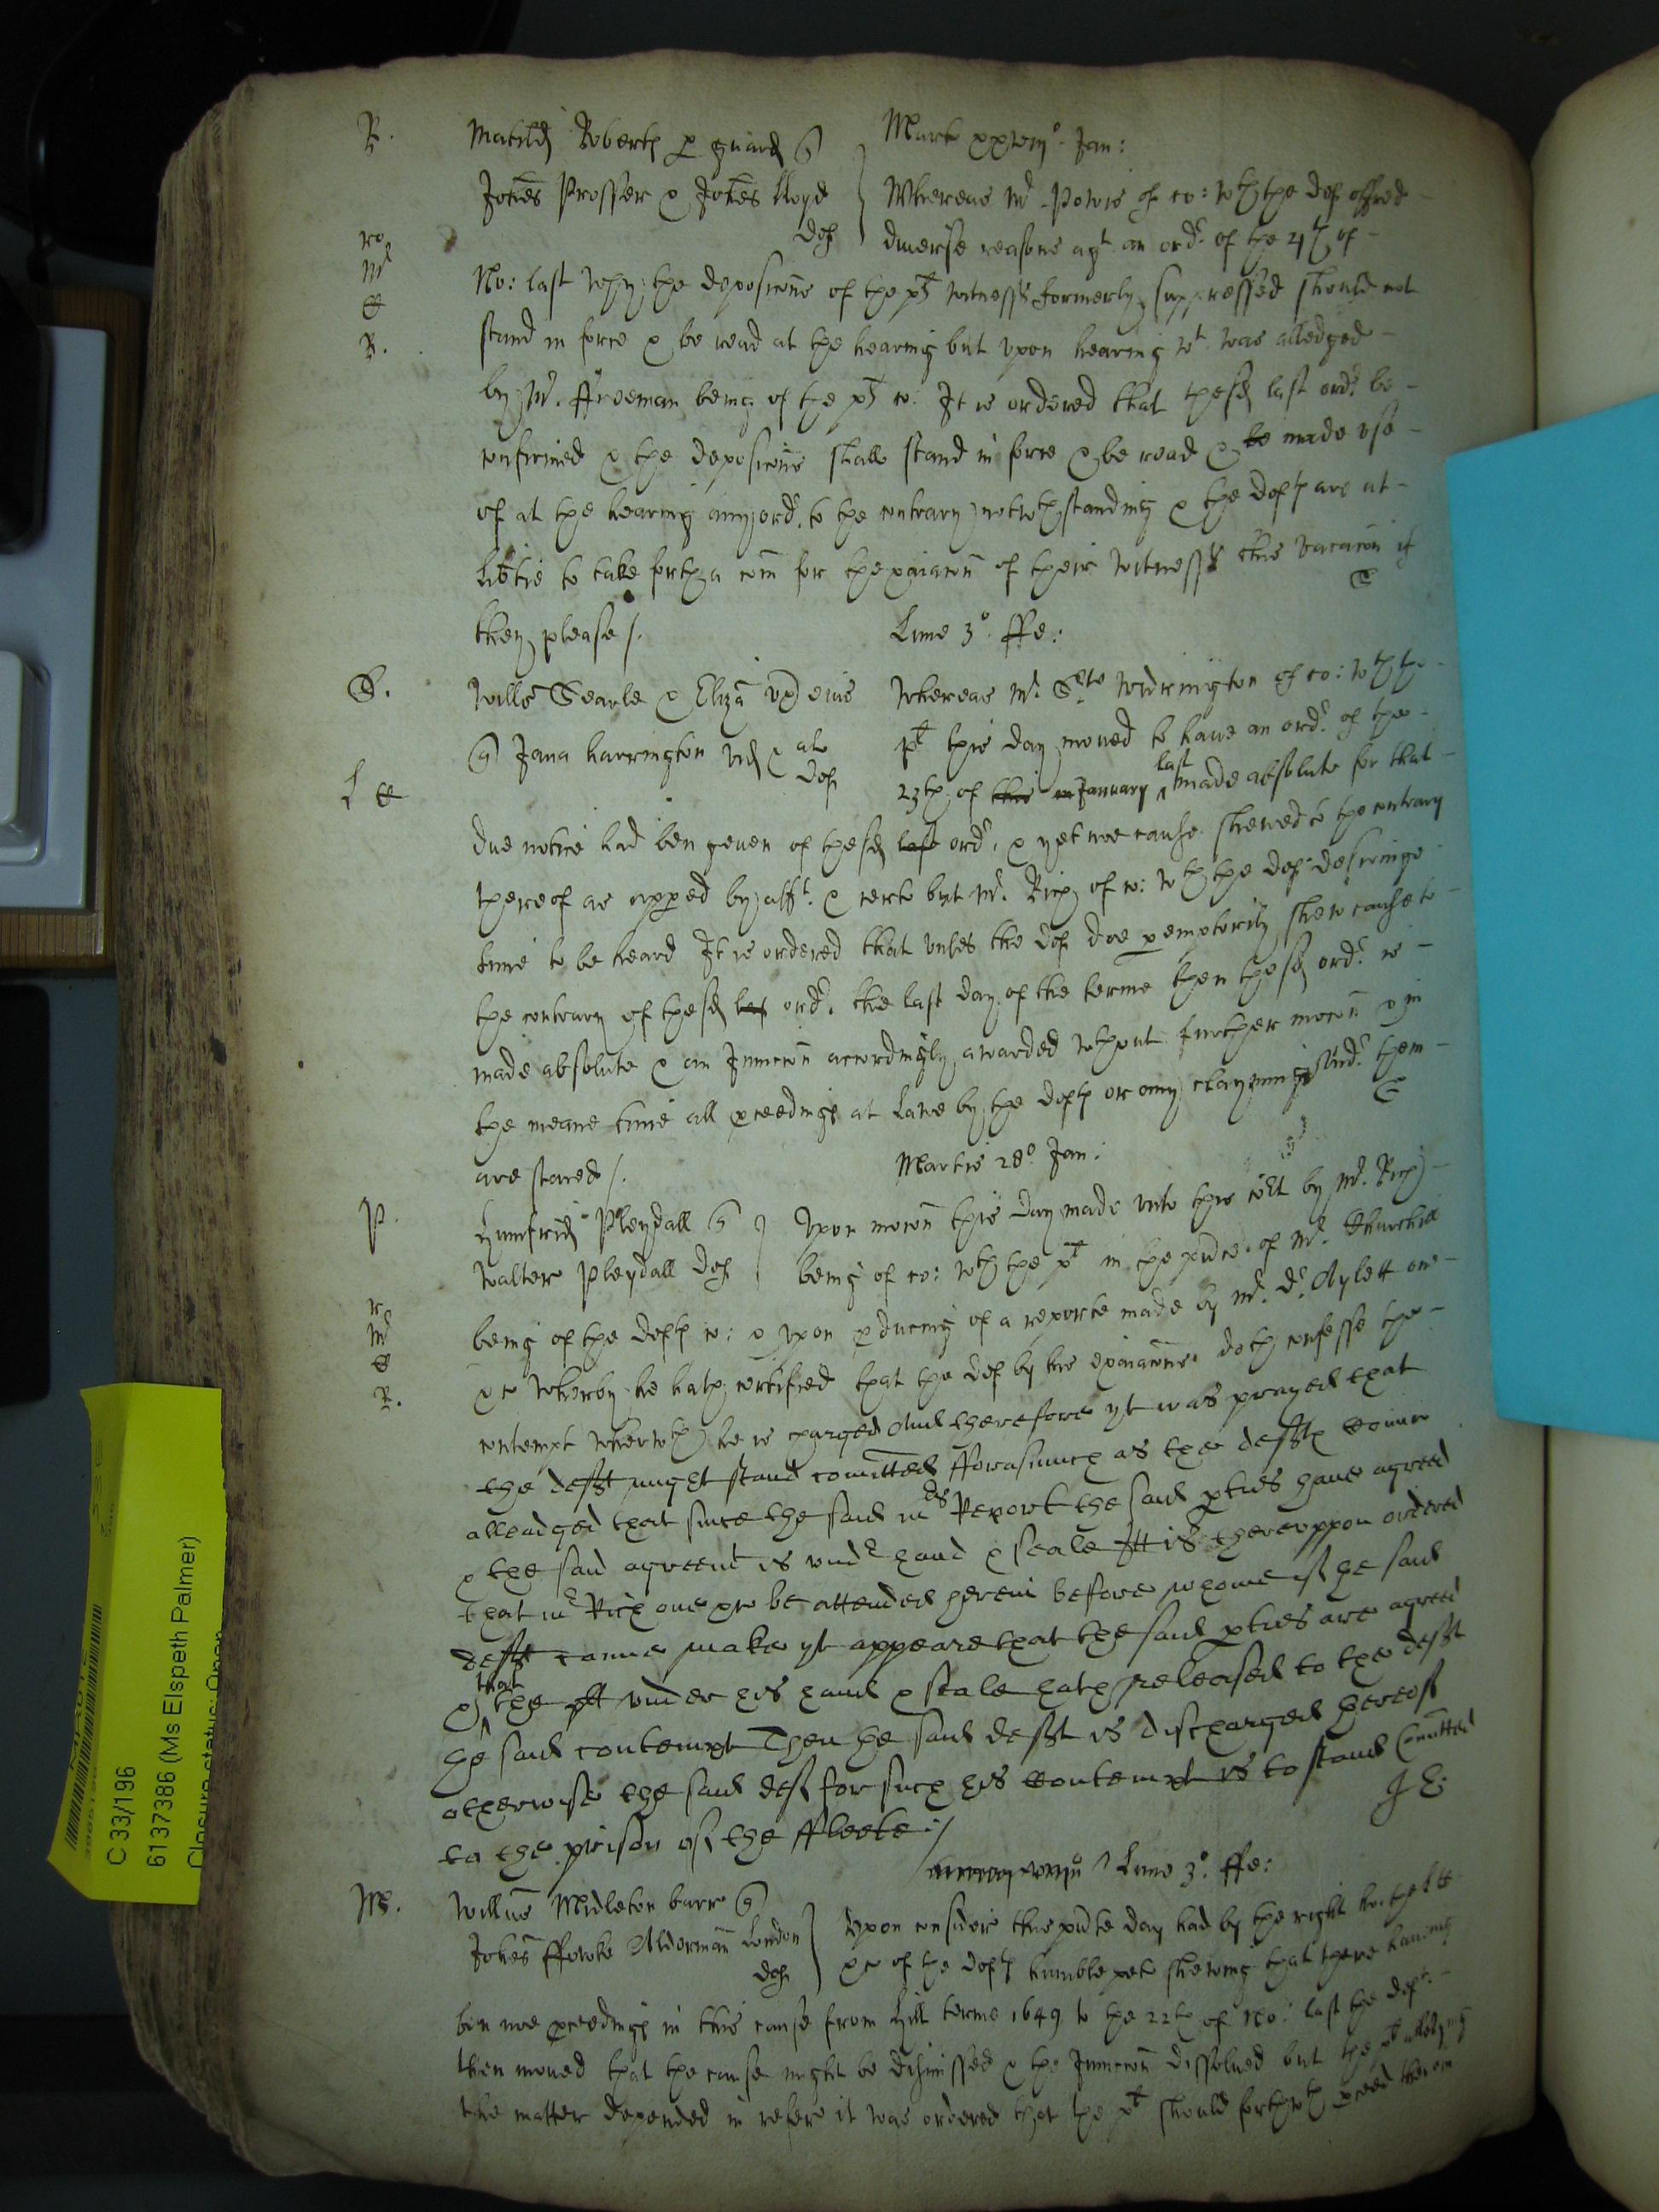 R. Matild Roberts p guard q Marte xxviij° Jan:
Johes Prosser & Johes Lloyd Whereas Mr Powis of co: wth the def offred
def diverse reasons agt an ordr of the 4th of
No: last why the deposicons of the plt witnesses formerly suppressed should not
stand in force & be read at the hearing but upon hearing wt was alledged
by Mr. ffreeman being of the plt co: It is ordered that the sd last ordr be
confirmed & the deposicons shall stand in force & be read & be made use
of at the hearing any ordr. to the contrary notwthstanding & the defts are at
libtie to take forth a com for the exaiacon of their witnesses this vacacon if
they please /. Lune 3° ffe:
S. Willo Searle & Eliza ux eius Whereas Mr. Serte Widrington of co: wth the
q Jana Harrington vid & als plt this day moved to have an ordr. of the
def 23th of this January last made absolute for that
due notice had ben geven of the sd last ordr. & yet noe cause shewed to the contrary
thereof as appeed by afft. & certe but Mr. Rich of co: wth the def desiringe
time to be heard It is ordered that unles the def doe pemptorily shew cause to
the contrary of the sd last ordr. the last day of the terme then the sd ordr. is
made absolute & an Injuncon accordingly awarded wthout further mocon & in
the meane time all pceedings at Lawe by the defts or any clayming undr. them
are staied /. Martis 28° Jan:
P. Humfrid Pleydall q Upon mocon this day made unto this co't by Mr. Rich
Walter Pleydall def being of co: wth the plt in the pnce of Mr. Churchill
being of the defts co: & upon pducing of a reporte made by Mr. Dr. Aylett one
&c whereby he hath certified that the def by his exaiacons doth confesse the
contempt wherwth he is charged And therefore yt was prayed that
the defft might stand comitted fforasmuch as the deffts councell
alleadged that since the said Mrs Report the said pties have agreed
& the said agreemt is undr hand & seale It is thereuppon ordered
that Mr Rich one &c be attended herein before whome if the said
defft canne make yt appeare that the said pties are agreed
& that the plt under his hand & seale hath released to the defft
the said contempt Then the said defft is discharged thereof
otherwise the said def for such his contempt is to stand Comitted
to the prison of the ffleete :/
Lune 3°. ffe:
M. Willus Midleton barr q Upon consider this pnte day had by the right ho: the Ltt
Johes ffowke Alderman London &c of the defts humble peto shewing that there having
def
ben noe pceedings in this cause from Hill terme 1649 to the 22th of No: last the deft.
then moved that the cause might be dismissed & the Injuncon dissolved but the plt alledging
the matter depended in refere it was ordered that the plt should forthwth pceed therein
C 33/196
6137386 (Ms Elspeth Palmer)
Closure status: Open